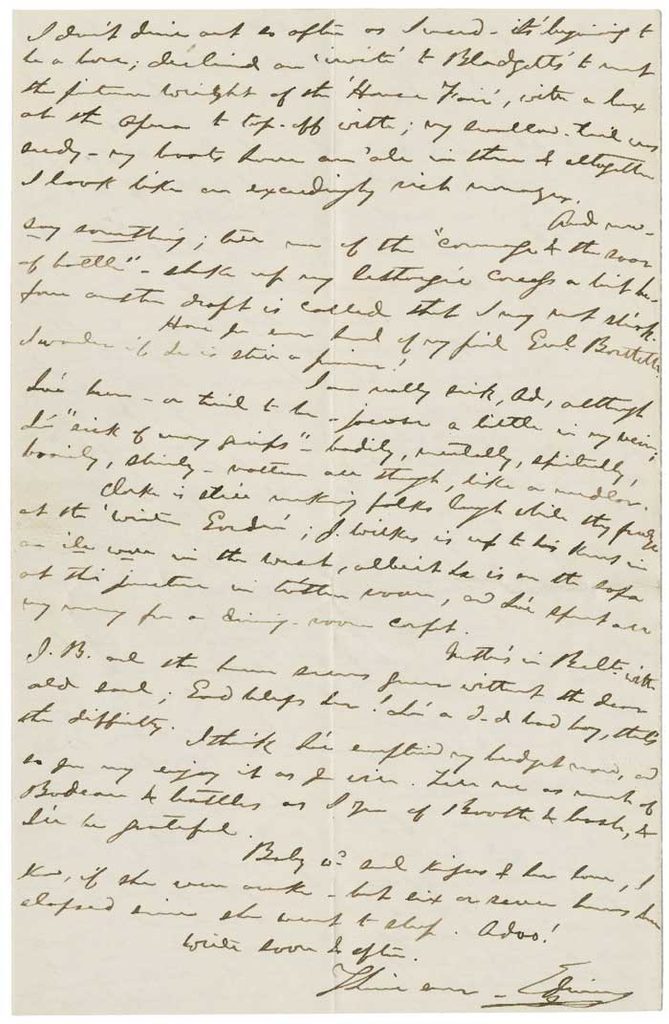 I don't dine out so often as I used - its' begining to
be a bore; declined an 'invite' to Blodgett's to meet
the future wright of the 'Horse Fair', with a box
at the Opera to top-off with; my swallow-tail was
seedy - my boots have an 'ole in them & altogether
I look like an exceedingly rich manager.
And now -
say something; tell me of the "courage & the roar
of battle" - shake up my lethargic a bit be-
fore another draft is called that I may not shirk.
How do you hear of my friend Genl. Bartlett.
I wonder if he is still a prisoner!
I am really sick, Ad, although
I've been - or tried to be - jocose a little in my vein;
I'm "sick of many griefs" - bodily, mentally, spiritually,
- rotten all through, like a medlar.
Clarke is still making folks laugh while they freeze
at the 'Winter Garden'; J. Wilkes is up to his knees in
an ile well in the west, albeit he is on the sofa
at this juncture in t'other room, and I've spent all
my money for a dining-room carpet.
Mother's in Balt. with
J. B. and the house seems queer without the dear
old soul; God bless her! I'm a d-d bad boy, that's
the difficulty.
I think I've emptied my budget now, and
so you may enjoy it as you will. Tell me as much of
Badeau & battles as I you of Booth & bosh, &
I'll be grateful.
Baby wd. send kisses & her love, I
know, if she were awake - but six or seven hours have
elapsed since she went to sleep. Adoo!
Write soon & often.
Thine ever - Edwin